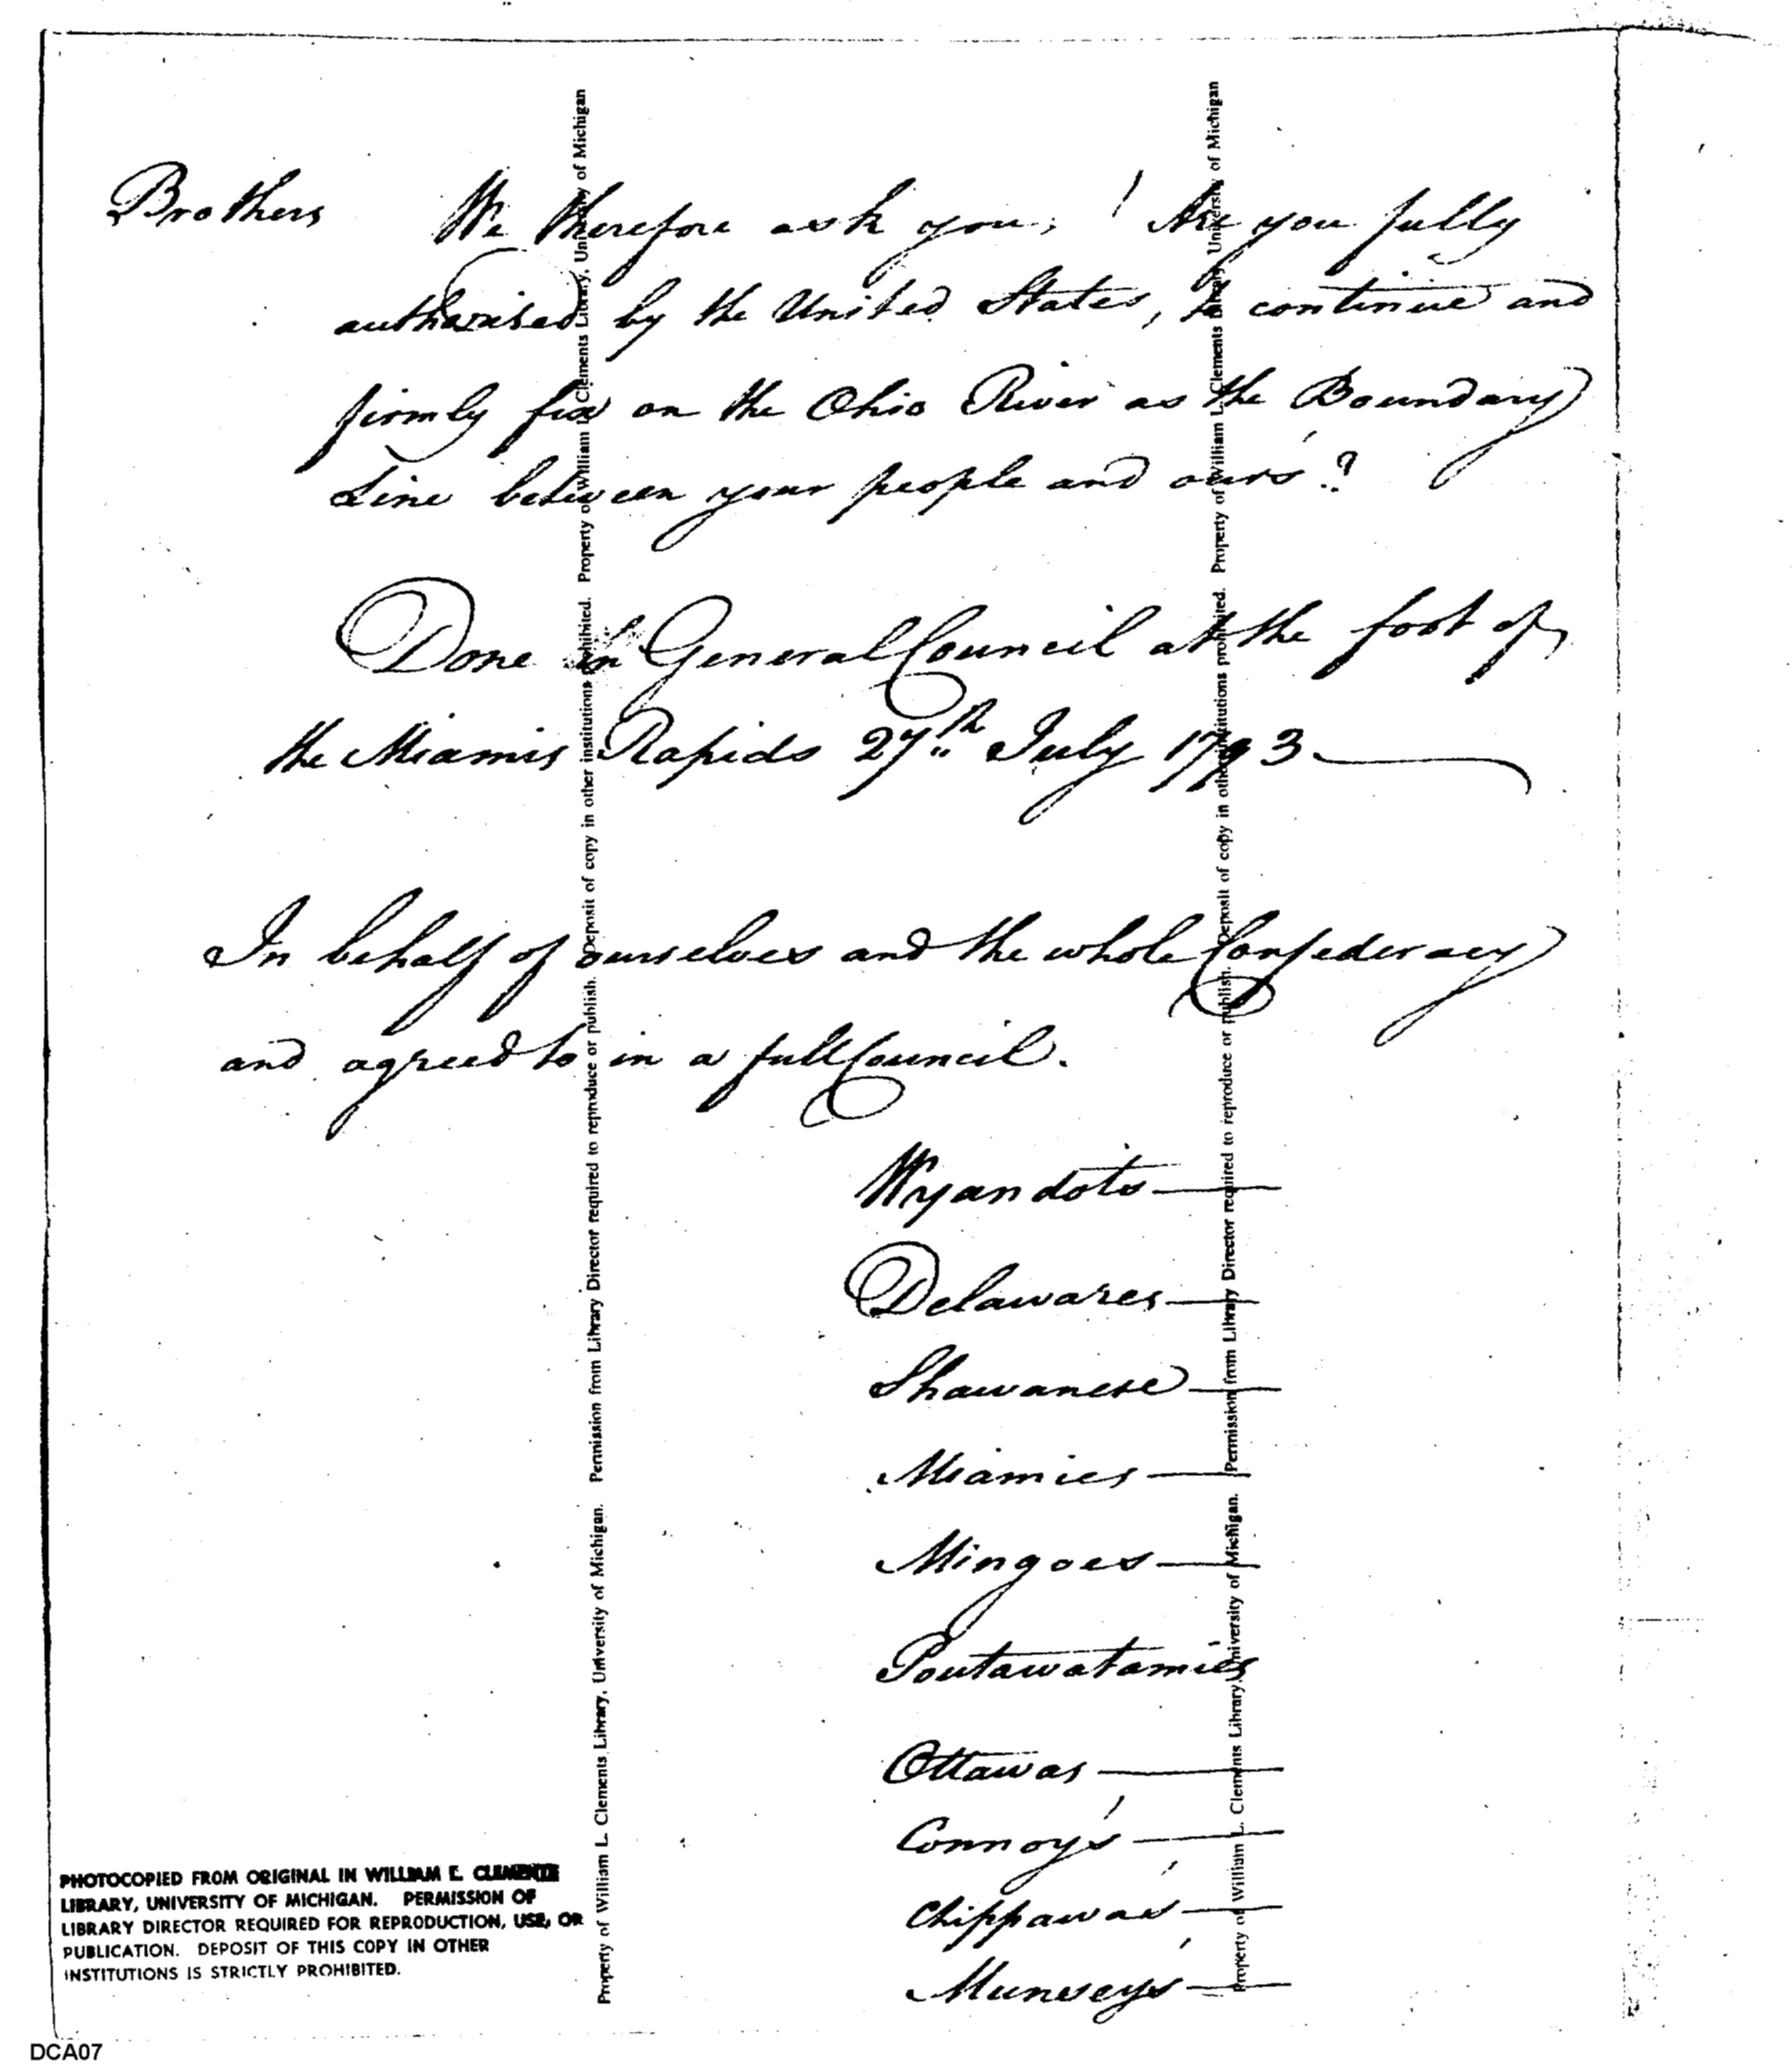 Brothers We therefore ask you, Are you fully
authorised by the United States, to continue and
firmly fix on the Ohio River as the Boundary
Line between your people and ours?
Done in General Council at the foot of
the Miamis Rapids 27th July 1793
In behalf of ourselves and the whole Confederacy
and agreed to in a full Council.
Wyandots
Delawares
Shawanese
Miamies
Mingoes
Poutawatamies
Ottawas
Connoy's
Chippawas
Munseys
PHOTOCOPIED FROM ORIGINAL IN WILLIAM L. CLEMENTS
LIBRARY, UNIVERSITY OF MICHIGAN. PERMISSION OF
LIBRARY DIRECTOR REQUIRED FOR REPRODUCTION, USE, OR
PUBLICATION. DEPOSIT OF THIS COPY IN OTHER
INSTITUTIONS IS STRICTLY PROHIBITED.
Property of William L. Clements Library, University of Michigan. Permission from Library Director required to reproduce or publish. Deposit of copy in other institutions prohibited. Property of William L. Clements Library, University of Michigan
Property of William L. Clements Library, University of Michigan. Permission from Library Director required to reproduce or publish. Deposit of copy in other institutions prohibited. Property of William L. Clements Library, University of Michigan
DCA07